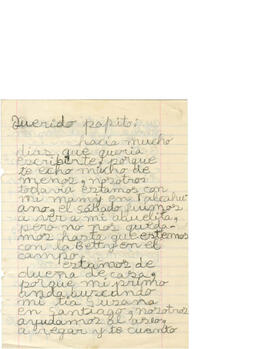 Querido papito:
hacía mucho
días que quería
escribirte, porque
te echo mucho de
menos, nosotros
todavía estamos con
mi mamy en Talcahu
ano, el sábado fuimos
a ver a mi abuelita,
pero no nos queda
mos harto que estemos
con la Betty en el
campo.
estamos de
dueña de casa,
porque mi primo
anda buscando
mi tía Susana
en Santiago, nosotros
ayudamos al aseo,
a regar y te cuento